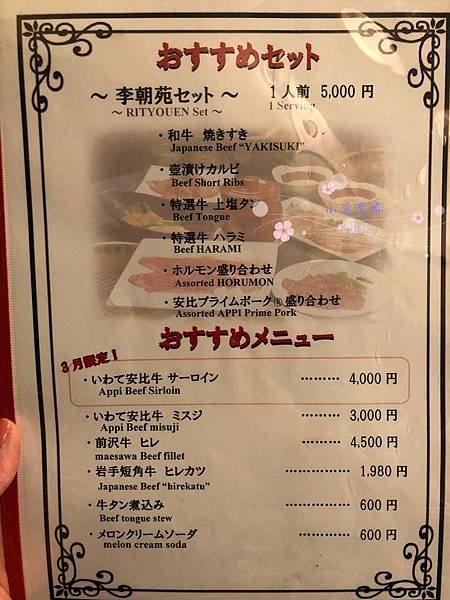 おすすめセット
～ 李朝苑セット ～ 1人前 5,000 円
～ RITYOUEN Set ～ 1 Serving
・和牛 焼きすき
Japanese Beef "YAKISUKI"
・壺漬けカルビ
Beef Short Ribs
・特選牛 上塩タン
Beef Tongue
・特選牛 ハラミ
Beef HARAMI
・ホルモン盛り合わせ
Assorted HORUMON
・安比プライムポーク®盛り合わせ
Assorted APPI Prime Pork
おすすめメニュー
3月限定！
・いわて安比牛 サーロイン ……… 4,000 円
Appi Beef Sirloin
・いわて安比牛 ミスジ ……… 3,000 円
Appi Beef misuji
・前沢牛 ヒレ ……… 4,500 円
maesawa Beef fillet
・岩手短角牛 ヒレカツ …………… 1,980 円
Japanese Beef "hirekatu"
・牛タン煮込み …………… 600 円
Beef tongue stew
・メロンクリームソーダ ………… 600 円
melon cream soda